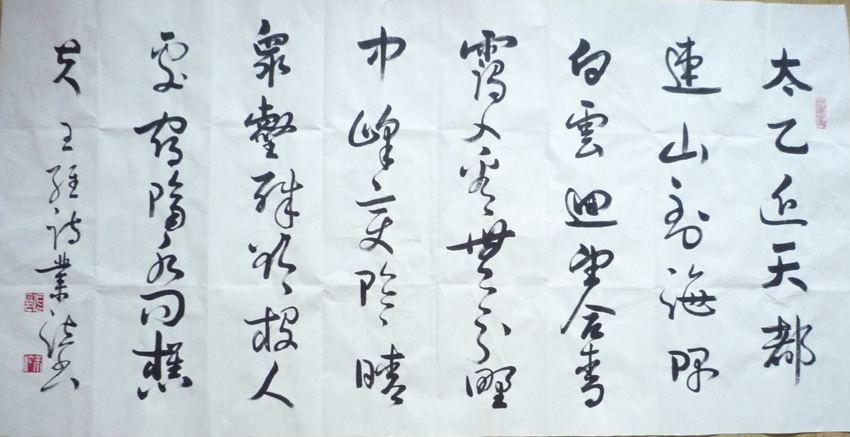 太乙近天都
連山到海隅
白雲迴望合青
靄入看無分野
中峰變陰晴
眾壑殊欲投人
處宿隔水問樵
夫 王維詩業